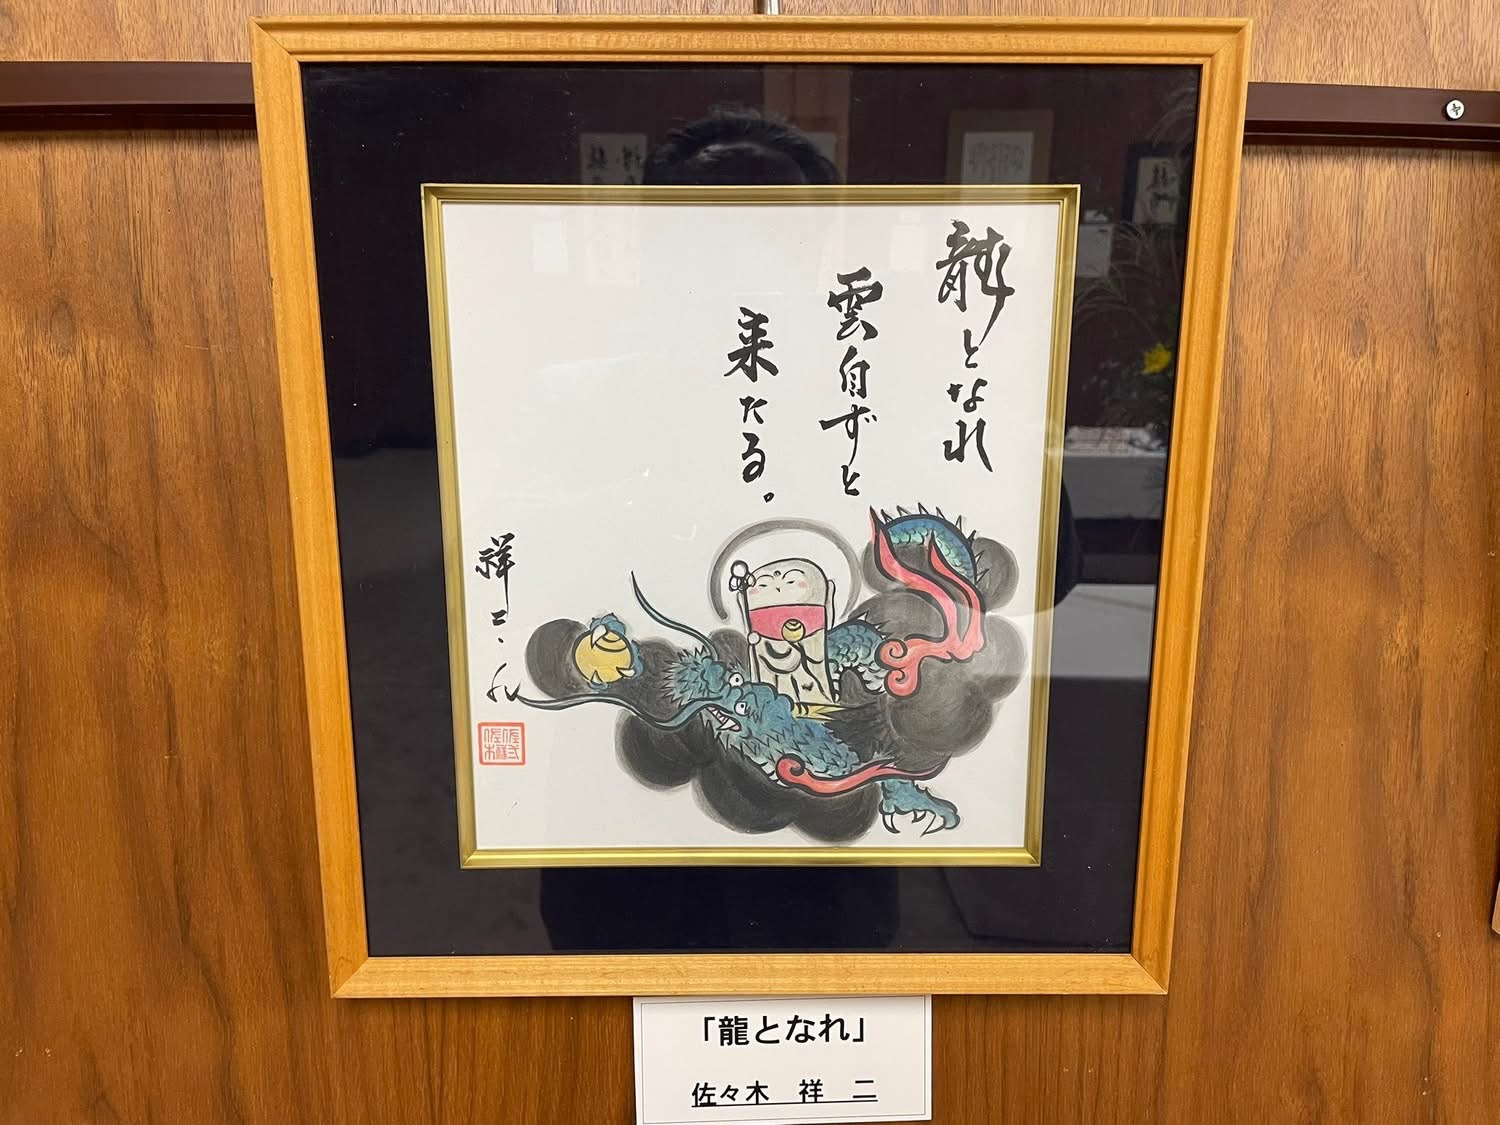 龍となれ
雲自ずと
来たる。
祥二
「龍となれ」
佐々木 祥 二